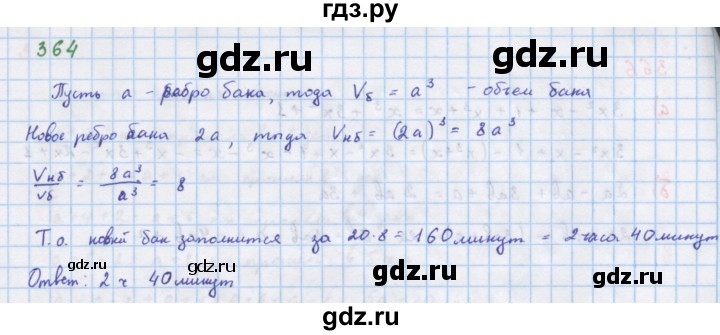 гдз.ру
364
gdz.ru gdz.ru
Пусть a - ребро бака, тогда Vб = a³ - объем бака
Новое ребро бака 2a, тогда Vнб = (2a)³ = 8a³
Vнб/Vб = 8a³/a³ = 8
gdz.ru gdz.ru
Т.о. новый бак заполнится за 20·8 = 160 минут = 2 часа 40 минут
Ответ: 2 ч 40 минут
gdz.ru gdz.ru